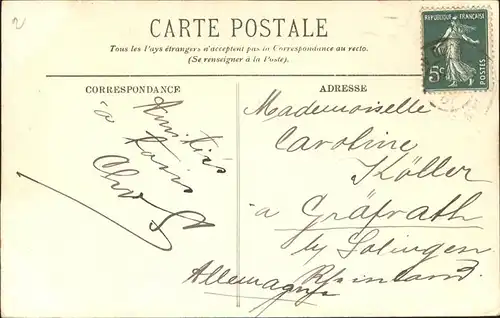 2
CARTE POSTALE
Tous les Pays étrangers n'acceptent pas la Correspondance au recto.
(Se renseigner à la Poste).
REPUBLIQUE FRANÇAISE
5c
POSTES
CORRESPONDANCE
Amitiés
à
tous
ADRESSE
Mademoiselle
Caroline
Köller
à Gräfrath
by Solingen
Rheinland
Allemagne